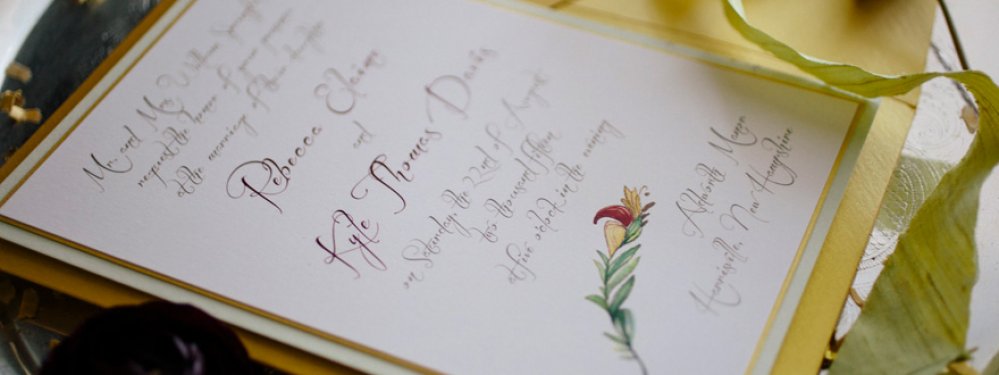 Mr. and Mrs. William
request the honor of your presence
at the marriage of their daughter
Rebecca Eloise
and
Kyle Thomas Davis
on Saturday, the 22nd of August
two thousand fifteen
at five o'clock in the evening
Aldworth Manor
Harrisville, New Hampshire